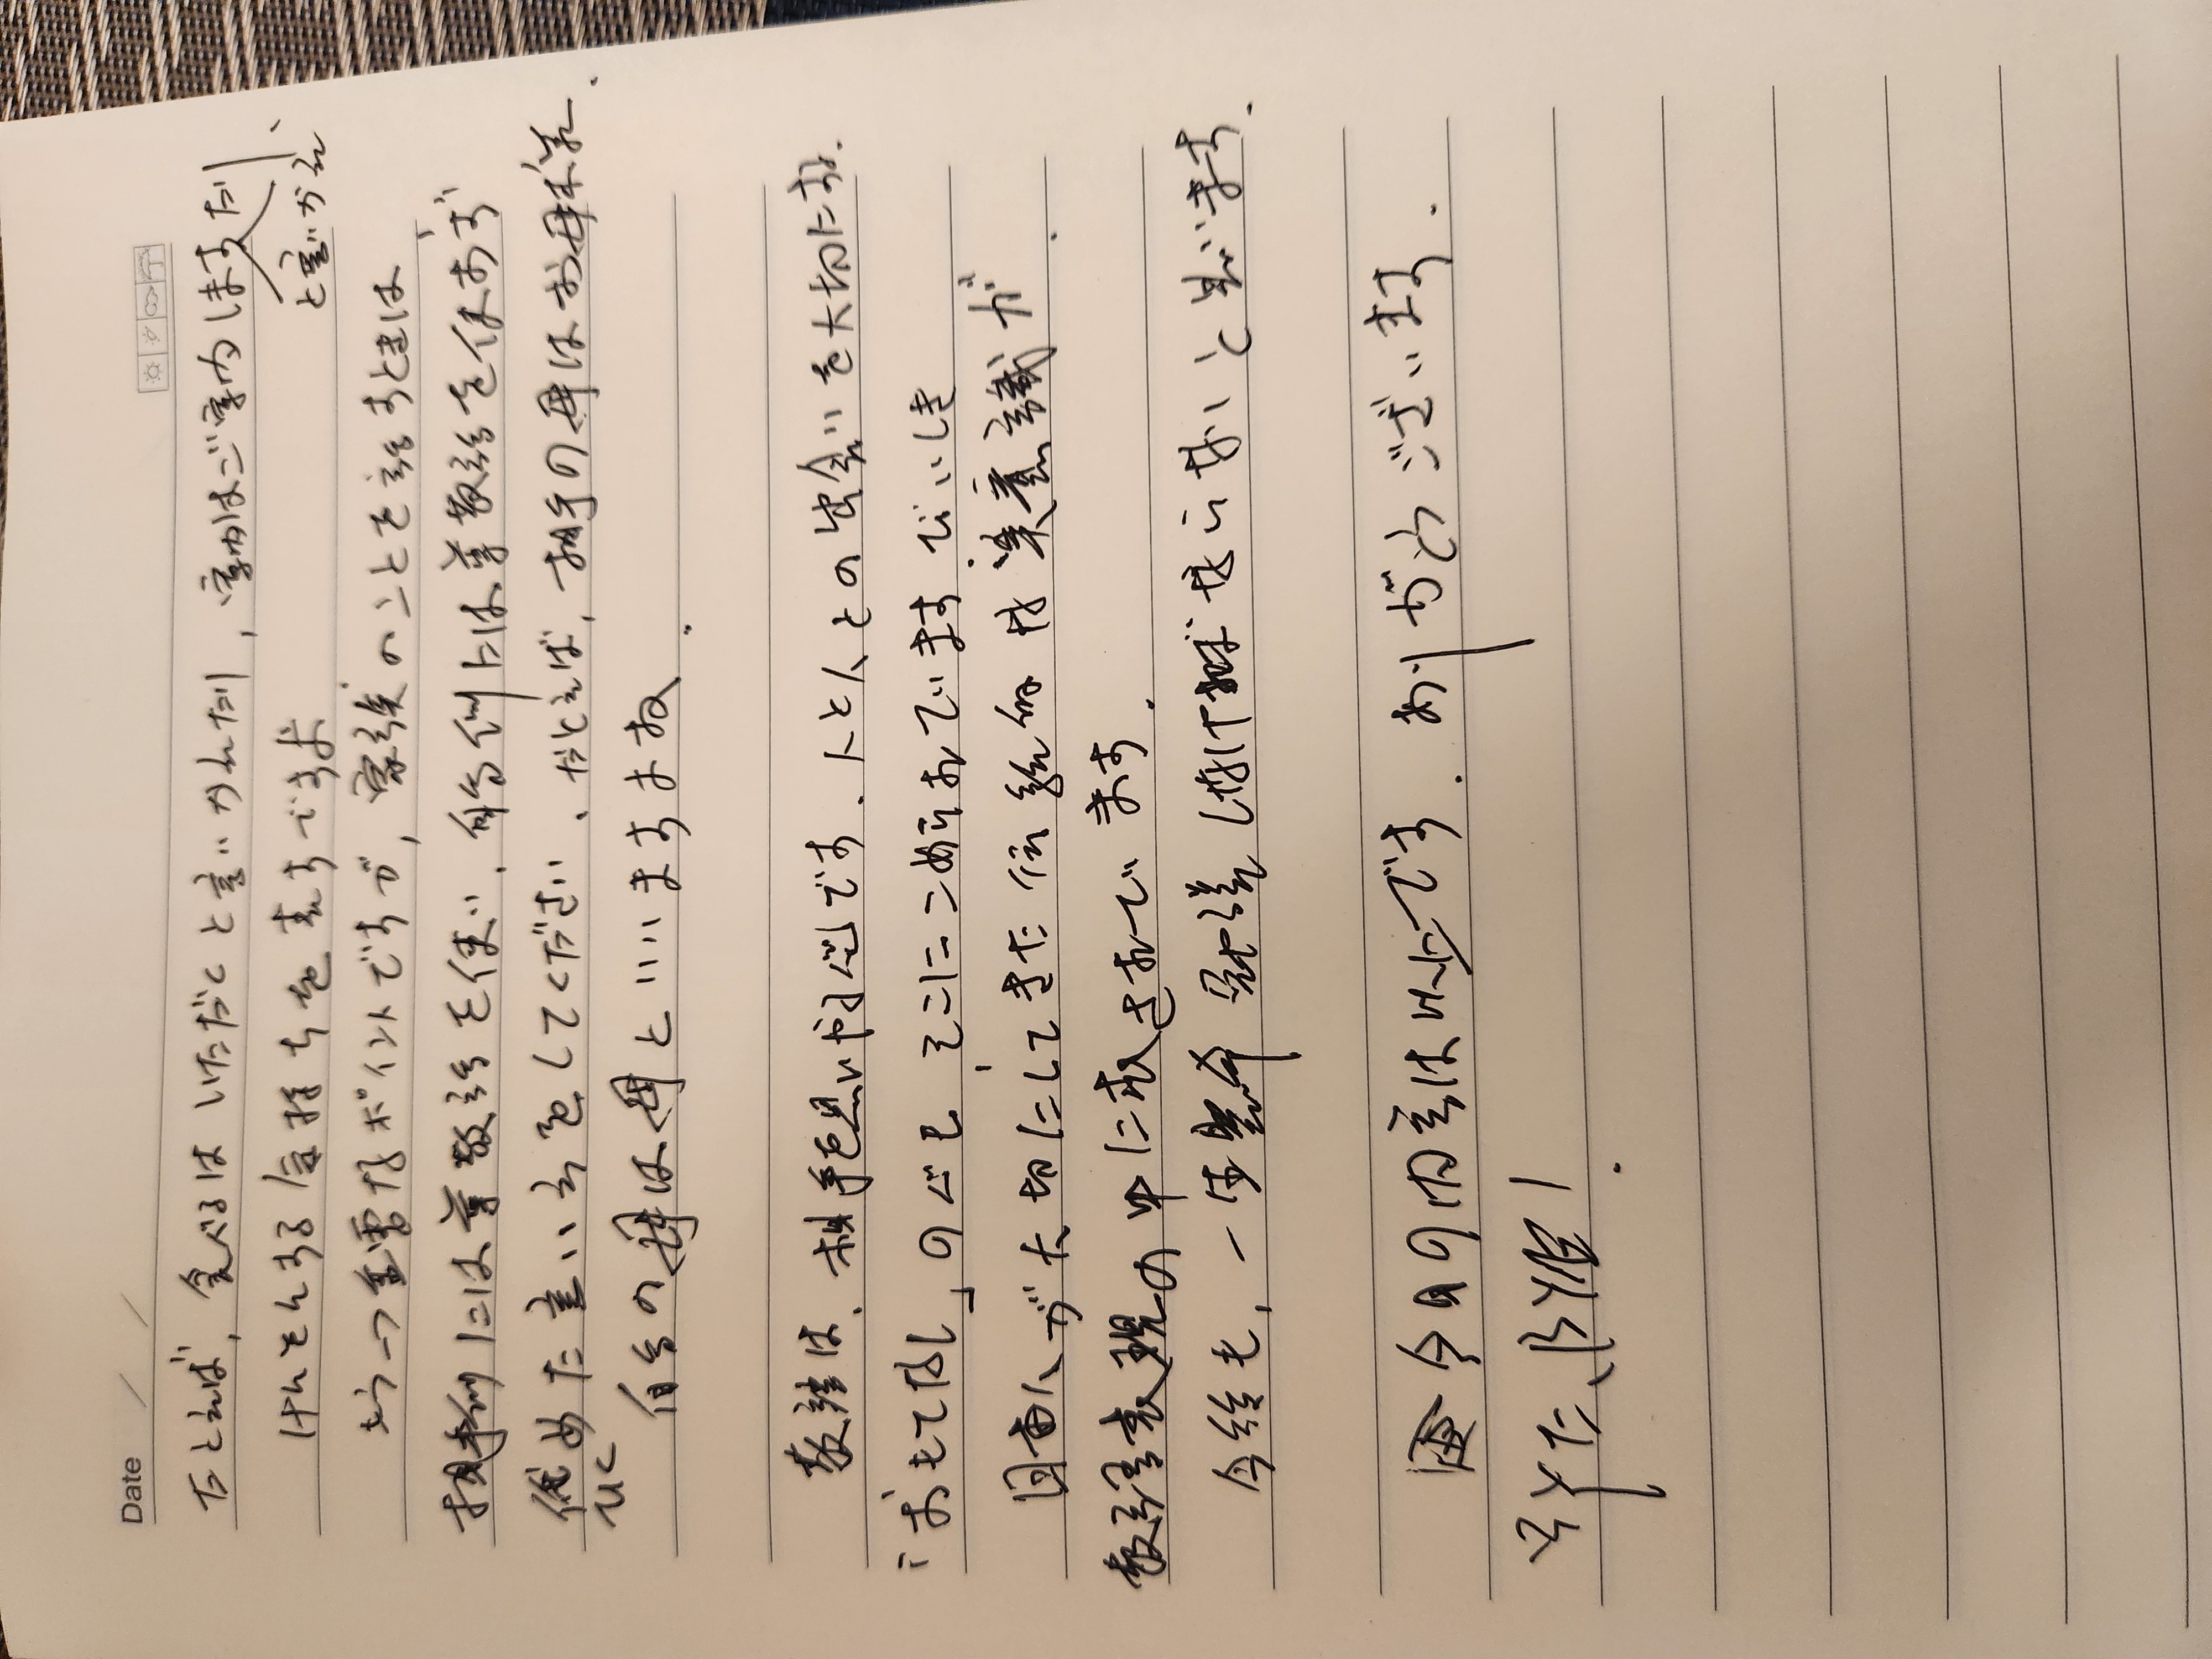 Date
たとえば、食べるはいただくと言いかえたり、案内はご案内しますだり、
と言いかえ
けんそんする気持ちを表すです求
もう一つ重要なポイントですが、家族のことを話すときは
相手側には尊敬語を使い、自分側には尊敬語を使わず、
低めた言い方をしてください、たとえば、相手の母はお母様.
ひく
自分の母は、母といいますまね.
敬語は、相手を思いやる心です、人と人との出会いを大切にする.
「おもてなし」の心も、そこにこめられています ていしき
日本人が大切にしてきた伝統的な美意識が.
敬語表現の中に残されています.
今後も、一歩 勉強しなければならないと思います.
今日の内容は以上です. ありがとうございます.